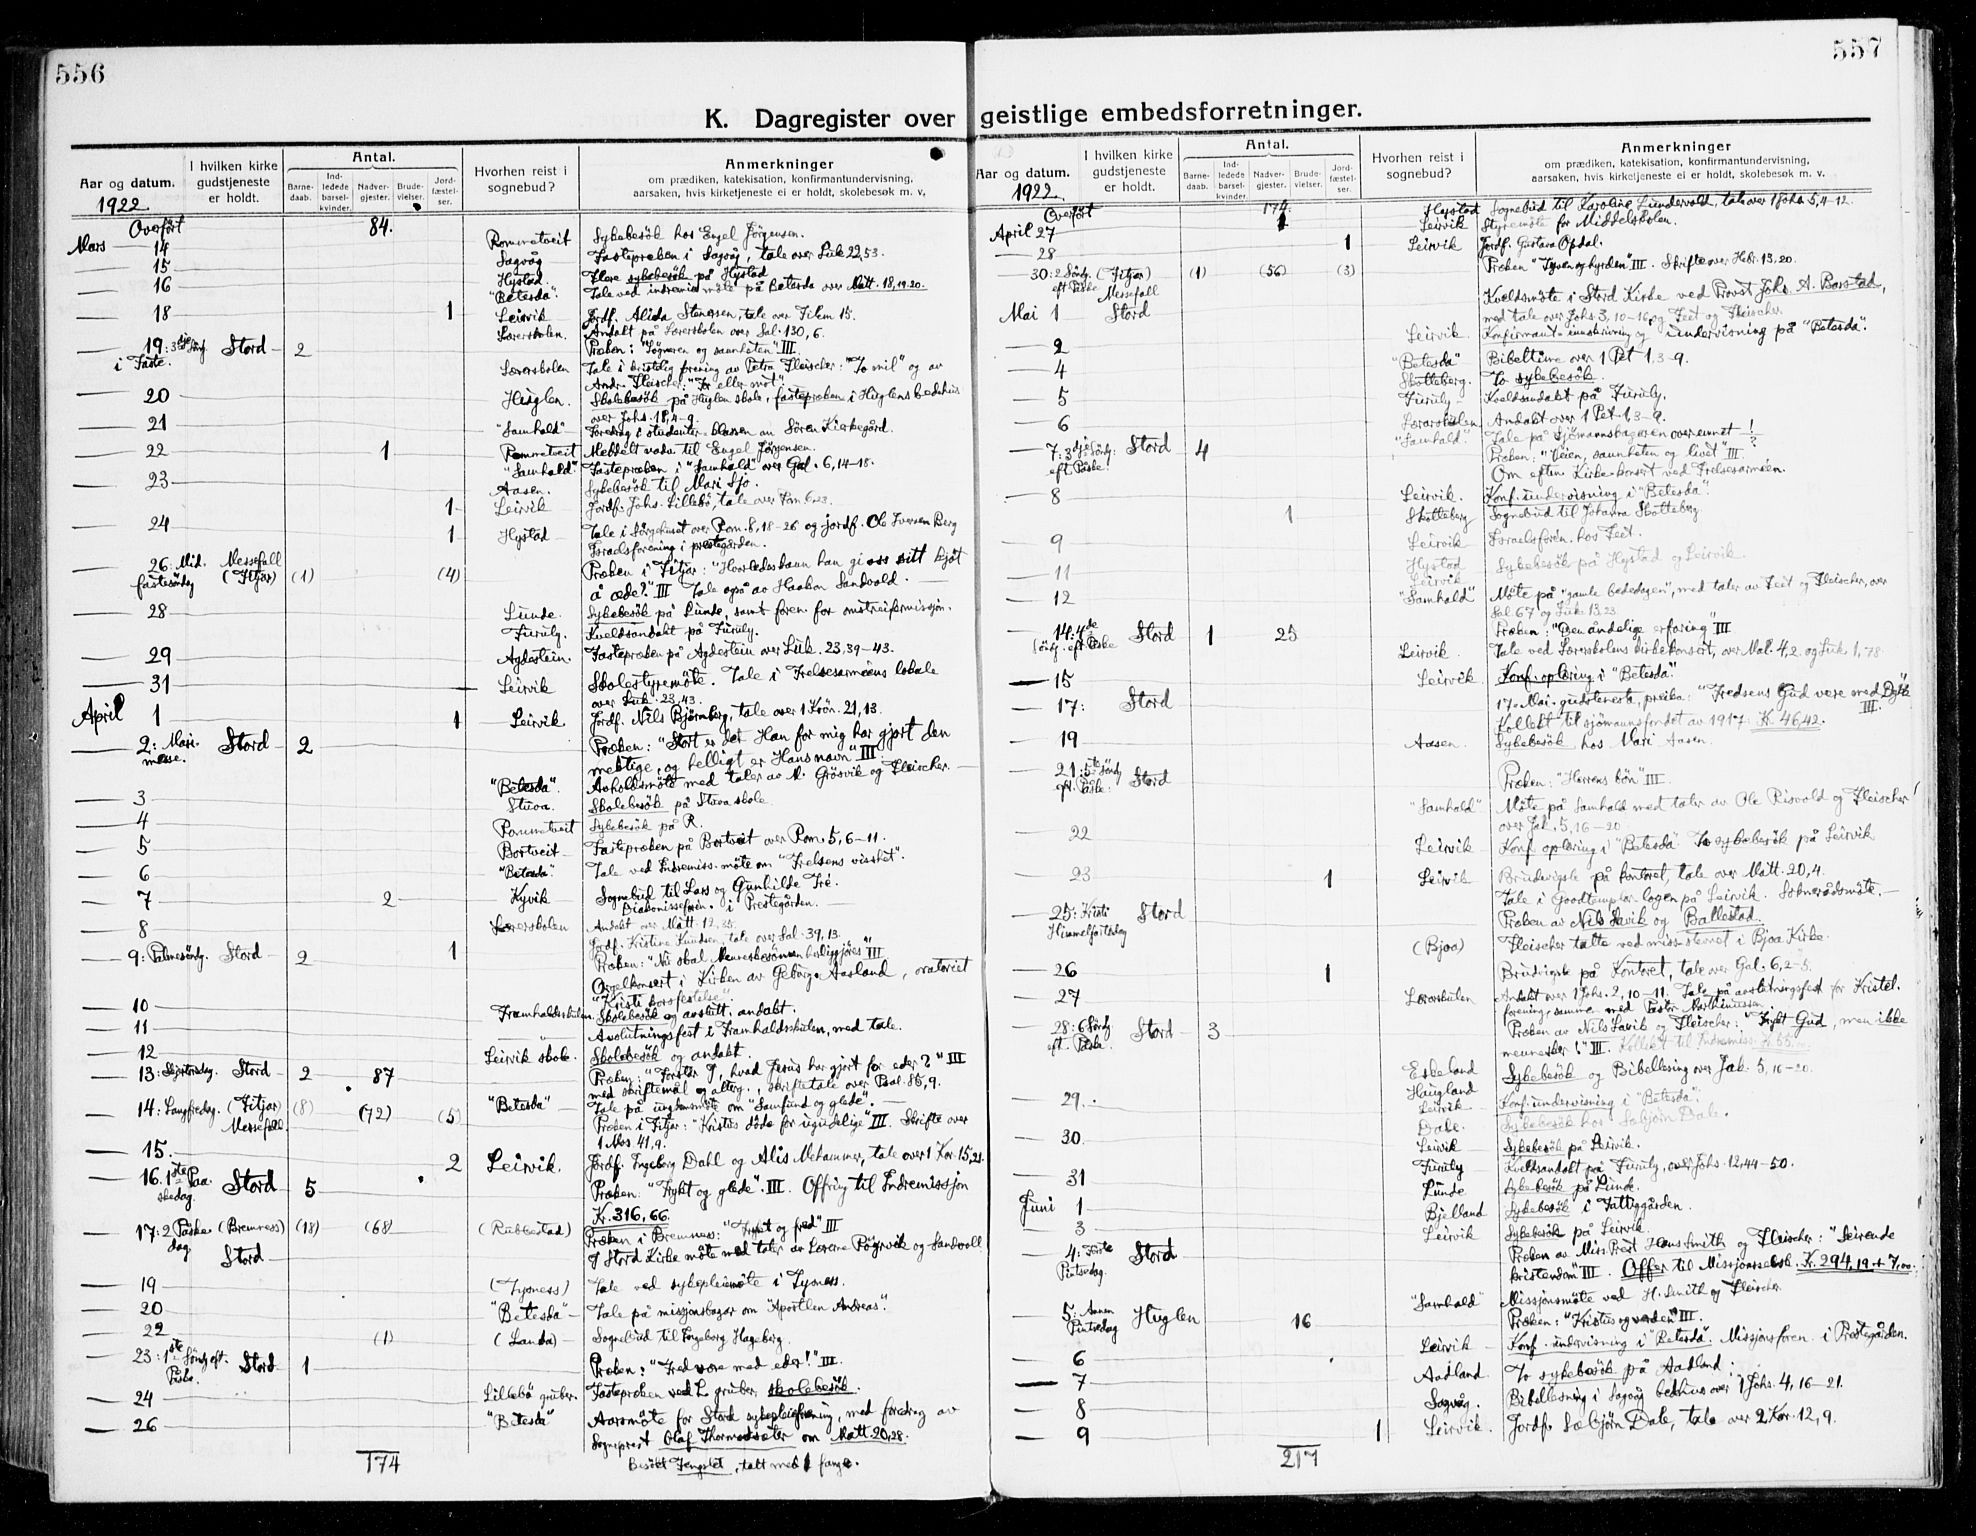 556
K. Dagregister over
Aar og datum.
I hvilken kirke gudstjeneste er holdt.
Antal.
Barne-daab.
Ind-ledede barsel-kvinder.
Nadver-gjester.
Brude-vielser.
Jord-fæstel-ser.
Hvorhen reist i sognebud?
Anmerkninger
om prædiken, katekisation, konfirmantundervisning,
aarsaken, hvis kirketjeneste ei er holdt, skolebesøk m. v.
1922.
Overført 84.
Mars 14 Rommetveit Sykebesök hos Engel Jörgensen.
15 Sagvåg Fastepræken i Sagvåg, tale over Luk 22,53.
16 Hystad Flere sykebesök på Hystad
"Betesda". Tale ved indremis. möte på Betesda over Matt. 18,19.20.
18 1 Leirvik Jordf. Alida Stenersen, tale over Filem 15.
Lærerskolen. Andakt på Lærerskolen over Sal. 130,6.
19: 3dje Sönd. i Faste. Stord 2 Præken: "Lögneren og sannheten" III.
Lærerskolen Tale i kristelig forening av Petra Fleischer: "To mil" og av
Andr. Fleischer: "For eller mot".
20 Huglen. Skolebesök på Huglen skole, fastepræken i Huglens bedehus
over Johs. 18,4-9.
21 "Samhald" Foredrag i studenterklassen om Sören Kirkegård.
22 1 Rommetveit Meddelt nadv. til Engel Jörgensen.
"Samhald" Fastepræken i "Samhald" over Gal. 6,14-18.
23 Aasen. Sykebesök til Mari Sjo.
1 Leirvik Jordf. Johs. Lillebö, tale over Rom 6,23.
24 1 Hystad Tale i Sörgehuset over Rom. 8,18-26 og jordf. Ole Iversen Berg
Israelsforening i prestegården.
26: Mid. fastesöndg Messefall (Fitjar) (1) (4) Præken i Fitjar: "Hvorledes kann han gi oss sitt kjöt
å æde?" III Tale også av Haakon Sandvold.
28 Lunde. Sykebesök på Lunde, samt foren. for omstreifermissjon.
Furuly. Kveldsandakt på Furuly.
29 Agdestein. Fastepræken på Agdestein over Luk. 23,39-43.
31 Leirvik Skolestyremöte. Tale i Frelsesarméens lokale
over Luk. 23,43.
April 1 1 Leirvik Jordf. Nils Björnberg, tale over 1 Krön. 21,13.
2: Mari-messe. Stord 2 Præken: "Stort er det Han for mig har gjort den
mektige, og helligt er Hans navn" III
"Betesda" Avholdsmöte med taler av A. Grösvik og Fleischer.
3 Stuva. Skolebesök på Stuva skole.
4 Rommetveit Sykebesök på R.
5 Bortveit Fastepræken på Bortveit over Rom. 5,6-11.
6 "Betesda". Tale ved Indremiss-möte om "Frelsens visshet".
7 2 Kyvik Sognebud til Lars og Gunhilde Tre.
Diakonisseforen. i Prestegården.
8 Lærerskolen Andakt over Matt. 12,35.
1 Jordf. Kristine Knudsen, tale over Sal. 39,13.
9: Palmesöndg. Stord 2 Præken: "Nu skal Menneskesönnen herliggjöres" III
Orgelkonsert i Kirken av Gebürg-Aasland, oratoriet
"Kristi korsfestelse".
10 Framhaldsskulen. Skolebesök og avslutt. andakt.
11 Avslutningsfest i Framhaldsskulen, med tale.
12 Leirvik skole. Skolebesök og andakt.
13: Skjærtorsdag. Stord 2 87 Præken: "Forstår I, hvad Jesus har gjort for eder?" III
med skriftemål og alterg., skriftetale over Psal. 86,9.
"Betesda" Tale på ungdomsmöte om "Samfund og glede".
14: Langfredag. (Fitjar) Messefall (8) (72) (5) Præken i Fitjar: "Kristus döde for ugudelige" III. Skrifte over
1 Mos. 41,9.
15. 2 Leirvik. Jordf. Ingeborg Dahl og Alis Mehammer, tale over 1 Kor. 15,21.
16. 1ste Paaskedag. Stord 5 Præken: "Frykt og glede". III. Offring til Indremissjon
Kr. 316,66.
17: 2 Påskedag (Bremness) (18) (68) (Rubbestad) Præken i Bremness: "Frykt og fred" III
Stord I Stord Kirke möte med taler av Lærerne Rögrvik og Sandvoll
19 (Tysness) Tale ved sykepleiemöte i Tysness.
20 "Betesda" Tale på missjonsbazar om "Apostlen Andreas".
22 (1) (Landa) Sognebud til Ingeborg Hageberg.
23: 1ste Sönd eft. Påske. Stord 1 Præken: "Fred være med eder!" III.
24 Lillebö gruber. Fastepræken ved L. gruber, skolebesök.
26 "Betesda" Aarsmöte for Stord sykepleieforening, med foredrag av
Sogneprest Olaf Thormodsæter om Matt. 20,28.
174 Besökt Fengslet, talt med 1 fange.
557
geistlige embedsforretninger.
Aar og datum.
I hvilken kirke gudstjeneste er holdt.
Antal.
Barne-daab.
Ind-ledede barsel-kvinder.
Nadver-gjester.
Brude-vielser.
Jord-fæstel-ser.
Hvorhen reist i sognebud?
Anmerkninger
om prædiken, katekisation, konfirmantundervisning,
aarsaken, hvis kirketjeneste ei er holdt, skolebesøk m. v.
1922.
Overført 174.
April 27 1 Hystad Sognebud til Karoline Lundervold, tale over 1 Johs. 5,4-12.
Leirvik Styremöte for Middelskolen.
28 1 Leirvik Jordf. Gustava Opdal.
30: 2 Sönd. eft Påske (Fitjar) Messefall (1) (56) (3) Præken "Tyven og hyrden" III. Skrifte over Hebr. 13,20.
Mai 1 Stord Kveldsmöte i Stord Kirke ved Provst Johs. A. Barstad,
med tale over Johs 3,10-16, og Feit og Fleischer.
2 Leirvik. Konfirmant-innskrivning og undervisning på "Betesda".
4 "Betesda" Bibeltime over 1 Pet 1,3-9.
Skotteberg. To sykebesök.
5 Furuly Kveldsandakt på Furuly.
6 Lærarskulen Andakt over 1 Pet. 1,3-9.
"Samhald". Tale på Sjömannsbasaren over emnet !?
7: 3dje Sönd. eft. Påske: Stord 4 Præken: "Veien, sannheten og livet" III.
Om eftm. Kirke-konsert ved Frelsesarméen.
8 Leirvik. Konf. undervisning i "Betesda".
1 Skotteberg Sognebud til Johanna Skotteberg.
9 Leirvik Israelsforen. hos Feet.
11 Hystad Leirvik Sykebesök på Hystad og Leirvik.
12 "Samhald" Möte på "gamle bededagen", med taler av Feit og Fleischer, over
Sal. 67 og Luk. 13,23.
14: 4de Söndg. eft Påske Stord 1 25 Præken: "Den åndelige erfaring" III
Leirvik. Tale ved Lærerskolens kirkekonsert, over Mal. 4,2 og Luk. 1,78.
15 Leirvik Konf. oplæring i "Betesda".
17: Stord 17. Mai-gudsteneste, preika: "Fredsens Gud vere med Dykk" III.
Kollekt til sjömannsfondet av 1917: K. 46,42.
19 Aasen. Sykebesök hos Mari Aasen.
21: 5te Sönd eft. Påske: Stord Præken: "Herrens bön" III.
"Samhald" Möte på Samhald med taler av Ole Risvold og Fleischer
over Jak. 5,16-20
22 Leirvik Konf. oplæring i "Betesda" To sykebesök på Leirvik
23 1 Leirvik Brudevigsle på kontoret, tale over Matt. 20,4.
Tale i Goodtemplar-logen på Leirvik. Soknerådsmöte.
25: Kristi Himmelfartsdag Stord Præken av Nils Lavik og Ballestad.
(Bjoa) Fleischer talte ved miss. stevnet i Bjoa Kirke.
26 1 Brudvigsle på Kontoret, tale over Gal. 6,2-5.
27 Lærarskulen Andakt over 1 Johs. 2,10-11. Tale på avslutningsfest for Kristel.
forening, samme med Pastor Marthinussen
28: 6 Sönd eft. Påske Stord 3 Præken av Nils Lavik og Fleischer: "Frykt Gud, men ikke
mennesker!" III. Kollekt til Indremiss. K. 65
Eskeland Haugland Sykebesök og Bibellesing over Jak. 5,16-20.
29. Leirvik Konf. undervisning i "Betesda".
Dale. Sykebesök hos Sæbjörn Dale.
30. Leirvik Sykebesök på Leirvik.
Furuly Kveldsandakt på Furuly, over Johs. 12,44-50.
31 Lunde Sykebesök på Lunde.
Juni 1 Bjelland Sykebesök i Fattiggården.
3 Leirvik Sykebesök på Leirvik
4: Förste Pintsedag. Stord Præken av Miss.Prest Hans Smith og Fleischer: "Seirende
kristendom" III. Offer til Missjonsselsk. Kr. 294,19 + 7,00.
"Samhald" Missjonsmöte ved H. Smith og Fleischer.
5: Annen Pintsedag Huglen 16 Præken: "Kristus og verden" III.
Leirvik Konf. undervisning i "Betesda". Missjonsforen. i Prestegården.
6 Aadland To sykebesök på Aadland.
7 Sagvåg. Bibellesning i Sagvåg bedehus over 1 Johs. 4,16-21.
8
9 1 Leirvik. Jordf. Sæbjörn Dale, tale over 2 Kor. 12,9.
217